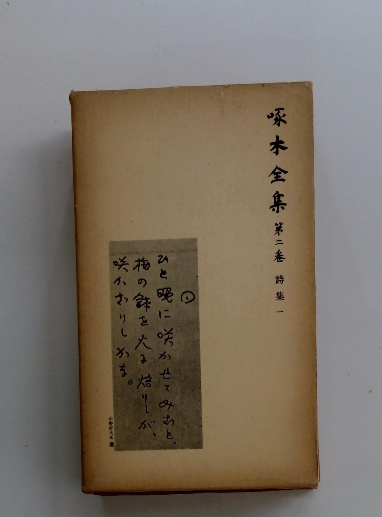 啄木全集 第二巻 詩集 一
ひと晩に咲かせてみむと、
梅の鉢を火に焙りしが、
咲かざりしかな。